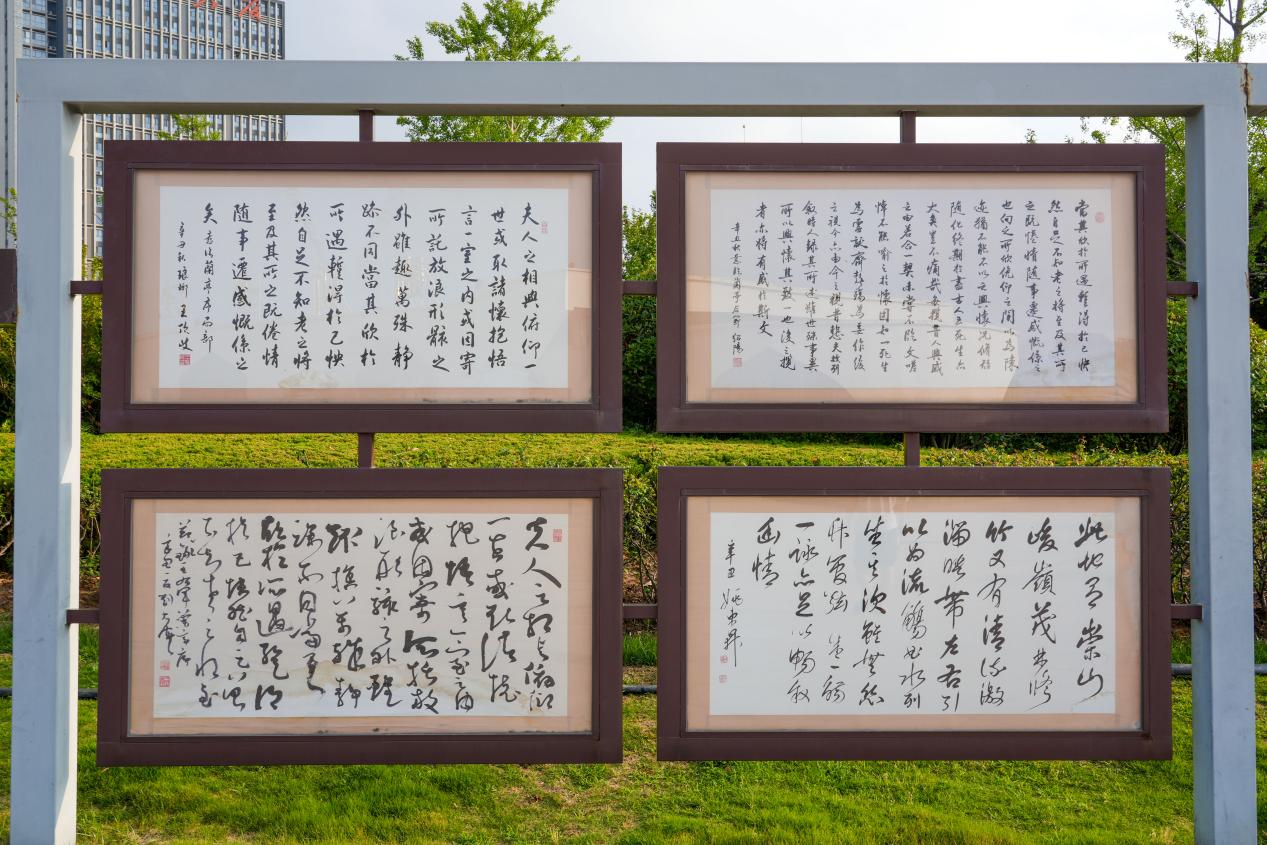 夫人之相與俯仰一
世或取諸懷抱悟
言一室之內或因寄
所託放浪形骸之
外雖趣萬殊静
躁不同當其欣於
所遇蹔得於己怏
然自足不知老之將
至及其所之既倦情
隨事遷感慨係之
矣 右臨蘭亭序局部
辛丑秋琅琊王
當其欣於所遇蹔得於己怏
然自足不知老之將至及其所
之既惓情隨事遷感慨係之
也向之所欣俛仰之間以為陳
迹猶不能不以之興懷況脩短
隨化終期於盡古人云死生亦
大矣豈不痛哉每攬昔人興感
之由若合一契未嘗不臨文嗟
悼不能喻之於懷固知一死生
為虛誕齊彭殤為妄作後
之視今亦由今之視昔悲夫故列
敘時人錄其所述雖世殊事異
所以興懷其致一也後之攬
者亦將有感於斯文
夫人之相與俯仰
一世或取諸懷
抱悟言一室內
或因寄所託放
浪形骸之外雖
趣萬殊静
躁不同當其
欣於所遇蹔得
於己怏然自足
不知老之將至
此地有崇山
峻嶺茂林脩
竹又有清流激
湍暎帶左右引
以為流觴曲水列
坐其次雖無絲
竹管弦盛一觴
一詠亦足以暢敘
幽情
辛丑